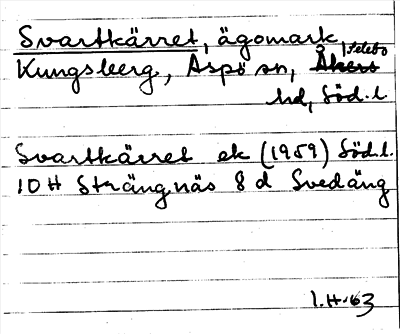 Svartkärret, ägomark,
Kungsberg, Aspö sn, Åkers Selebo
hd, Söd. l
Svartkärret ek (1959) Söd. l.
10 H Strängnäs 8 d Svedäng
1.H.63